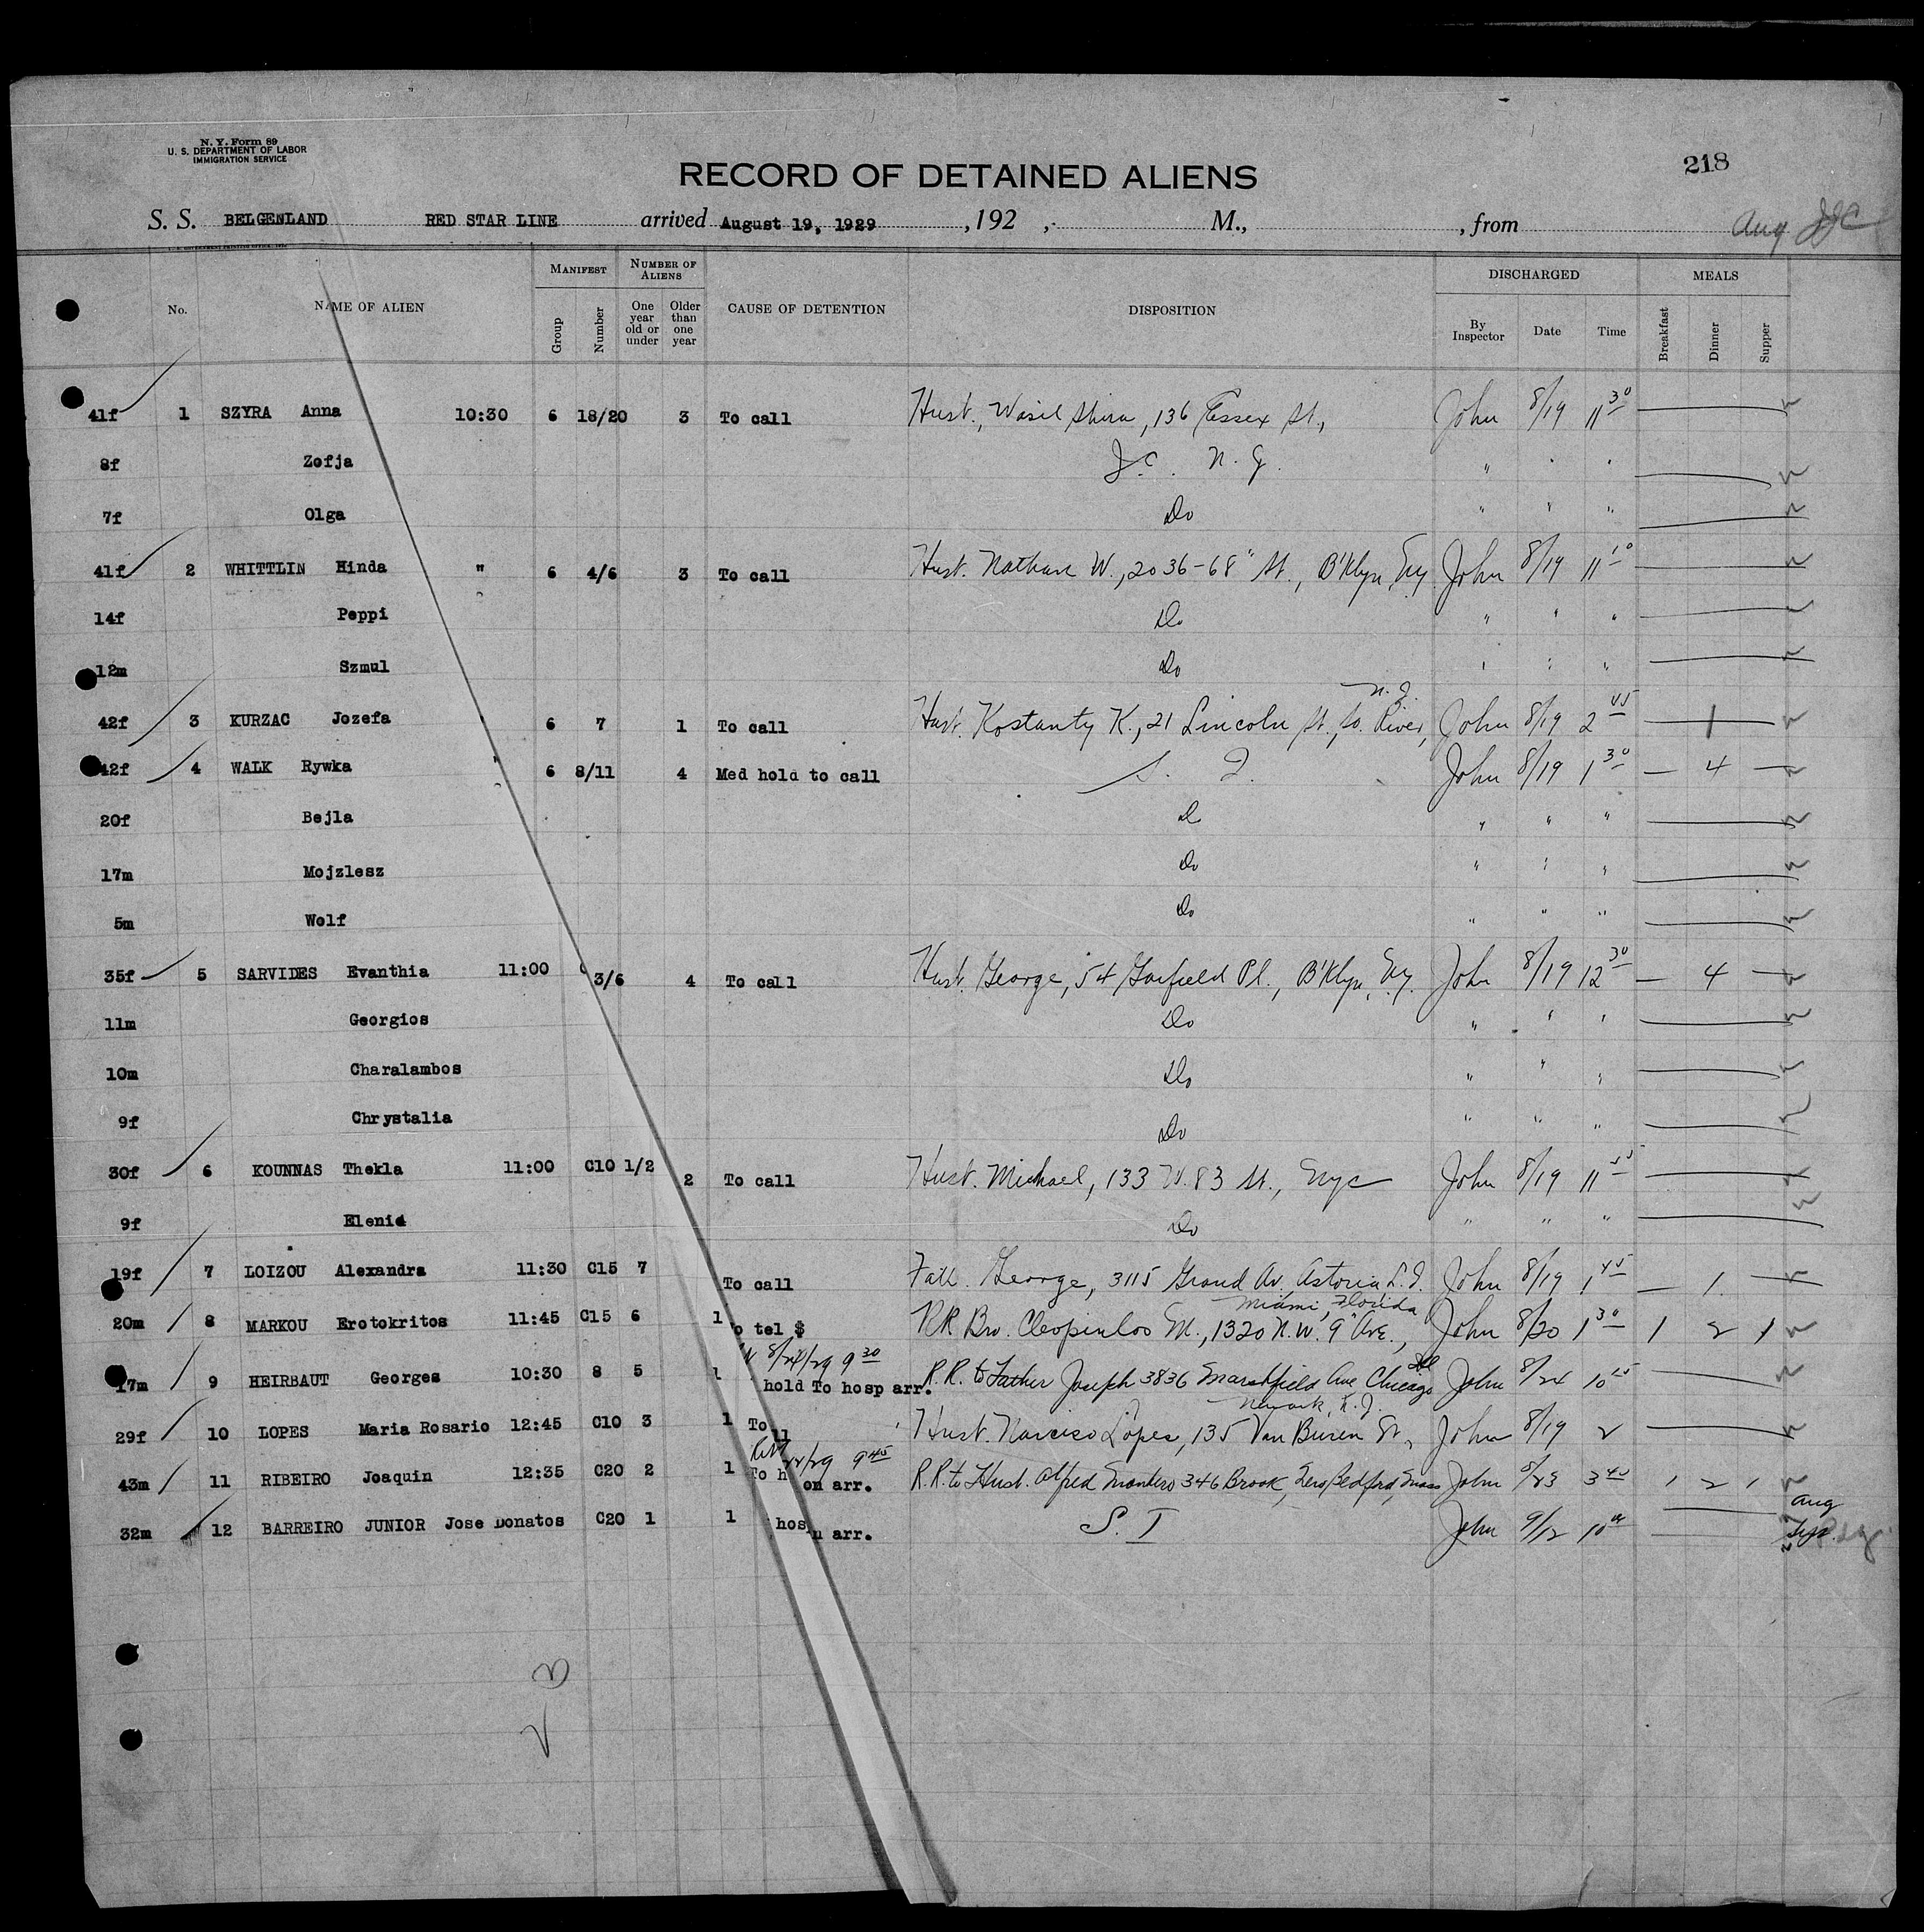 N. Y. Form 89
U. S. DEPARTMENT OF LABOR
IMMIGRATION SERVICE
218
RECORD OF DETAINED ALIENS
S. S. BELGENLAND RED STAR LINE arrived August 19, 1929 , 192 , M., , from Aug
No. NAME OF ALIEN MANIFEST Group Number NUMBER OF ALIENS One year old or under Older than one year CAUSE OF DETENTION DISPOSITION DISCHARGED By Inspector Date Time MEALS Breakfast Dinner Supper
41f 1 SZYRA Anna 10:30 6 18/20 3 To call Husb., Wasil Shira, 136 Essex St., John 8/19 11 30
8f Zofja J.C. N.J. " " "
7f Olga Do " " "
41f 2 WHITTLIN Hinda " 6 4/6 3 To call Husb. Nathan W., 2036-68" St., B'klyn, Ny John 8/19 11 10
14f Peppi Do " " "
12m Szmul Do " " "
N.J.
42f 3 KURZAC Jozefa " 6 7 1 To call Husb. Kostanty K., 21 Lincoln St., So. River, John 8/19 2 45 1
42f 4 WALK Rywka " 6 8/11 4 Med hold to call S. I. John 8/19 1 30 4
20f Bejla Do " " "
17m Mojzlesz Do " " "
5m Wolf Do " " "
35f 5 SARVIDES Evanthia 11:00 3/6 4 To call Husb. George, 54 Garfield Pl., B'klyn, Ny. John 8/19 12 30 4
11m Georgios Do " " "
10m Charalambos Do " " "
9f Chrystalia Do " " "
30f 6 KOUNNAS Thekla 11:00 C10 1/2 2 To call Husb. Michael, 133 W. 83 St., Nyc John 8/19 11 55
9f Elenid Do " " "
19f 7 LOIZOU Alexandra 11:30 C15 7 To call Fath. George, 3115 Grand Av. Astoria L.I. John 8/19 1 45 1
Miami, Florida
20m 8 MARKOU Erotokritos 11:45 C15 6 1 o tel $ RR Bro. Cleopinlos M., 1320 N.W. 9" Ave., John 8/20 1 30 1 2 1
8/24/29 9 30
17m 9 HEIRBAUT Georges 10:30 8 5 1 hold To hosp arr. R.R. to Father Joseph 3836 Marshfield Ave Chicago Ill John 8/24 10 45
Newark, N.J.
29f 10 LOPES Maria Rosario 12:45 C10 3 1 To ll Husb. Narciso Lopes, 135 Van Buren St, John 8/19 2
22/29 9 45
43m 11 RIBEIRO Joaquin 12:35 C20 2 1 To h on arr. R.R. to Husb. Alfred Montero 346 Brook, New Bedford, Mass John 8/23 3 40 1 2 1
32m 12 BARREIRO JUNIOR Jose Donatos C20 1 1 hos n arr. S. I John 9/12 10 Aug Sep.